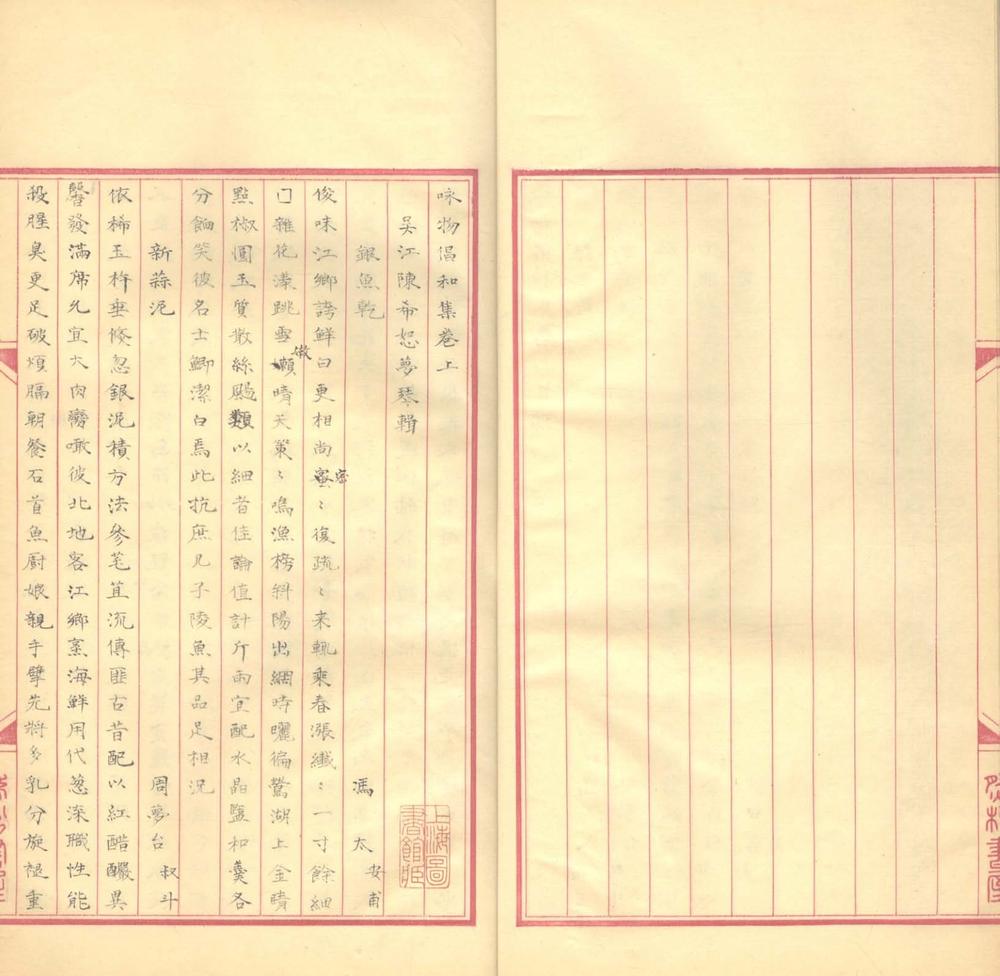 咏物倡和集卷上
吳江陳希恕夢琴輯
銀魚乾 馮太 安甫
俊味江鄉誇鮮白更相尚蜜密〻復疏〻來輒乘春漲纖〻一寸餘細
口雜花漾跳雪嫩晴天策〻鳴漁榜斜陽出網時曬徧鶯湖上金晴
點椒圓玉質散絲颺類以細者佳論值計斤兩宜配水晶鹽和羹各
分餉笑彼名士鯽潔白焉此抗庶几子陵魚其品足相況
新蒜泥 周夢台 叔斗
依稀玉杵垂倏忽銀泥積方法參芼苴流傳匪古昔配以紅醋釅異
馨發滿席允宜大肉臠噉彼北地客江鄉烹海鮮用代葱渫職性能
殺腥臭更足破煩膈朝餐石首魚厨娘親手擘先將多乳分旋褪重
上海圖書館